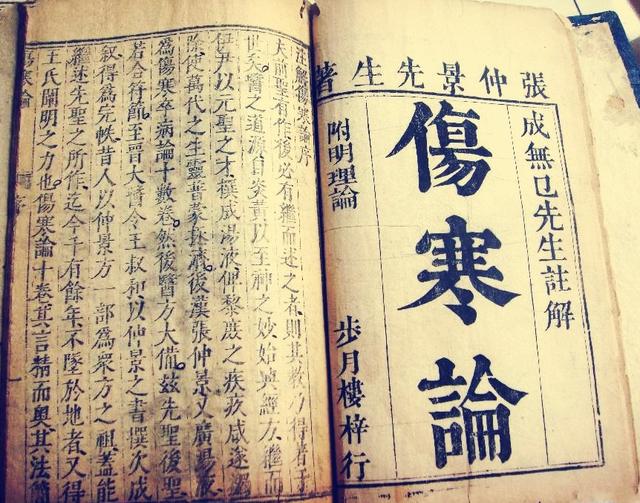 張仲景先生著
成無已先生註解
傷寒論
附明理論
步月樓梓行
註解傷寒論序
夫前聖有作後必有繼而述之者則其教乃得著于
世矣醫之道源自炎黃以至神之妙始興經方繼而
伊尹以元聖之才撰成湯液俾黎庶之疾疢咸遂蠲
除使萬代之生靈普蒙拯濟後漢張仲景又廣湯液
為傷寒卒病論十數卷然後醫方大備茲先聖後聖
若合符節至晉太醫令王叔和以仲景之書撰次成
叙得為完帙昔人以仲景方一部為眾方之祖蓋能
繼述先聖之所作迄今千有餘年不墜於地者又得
王氏闡明之力也傷寒論十卷其言精而奧其法簡
傷寒論 序